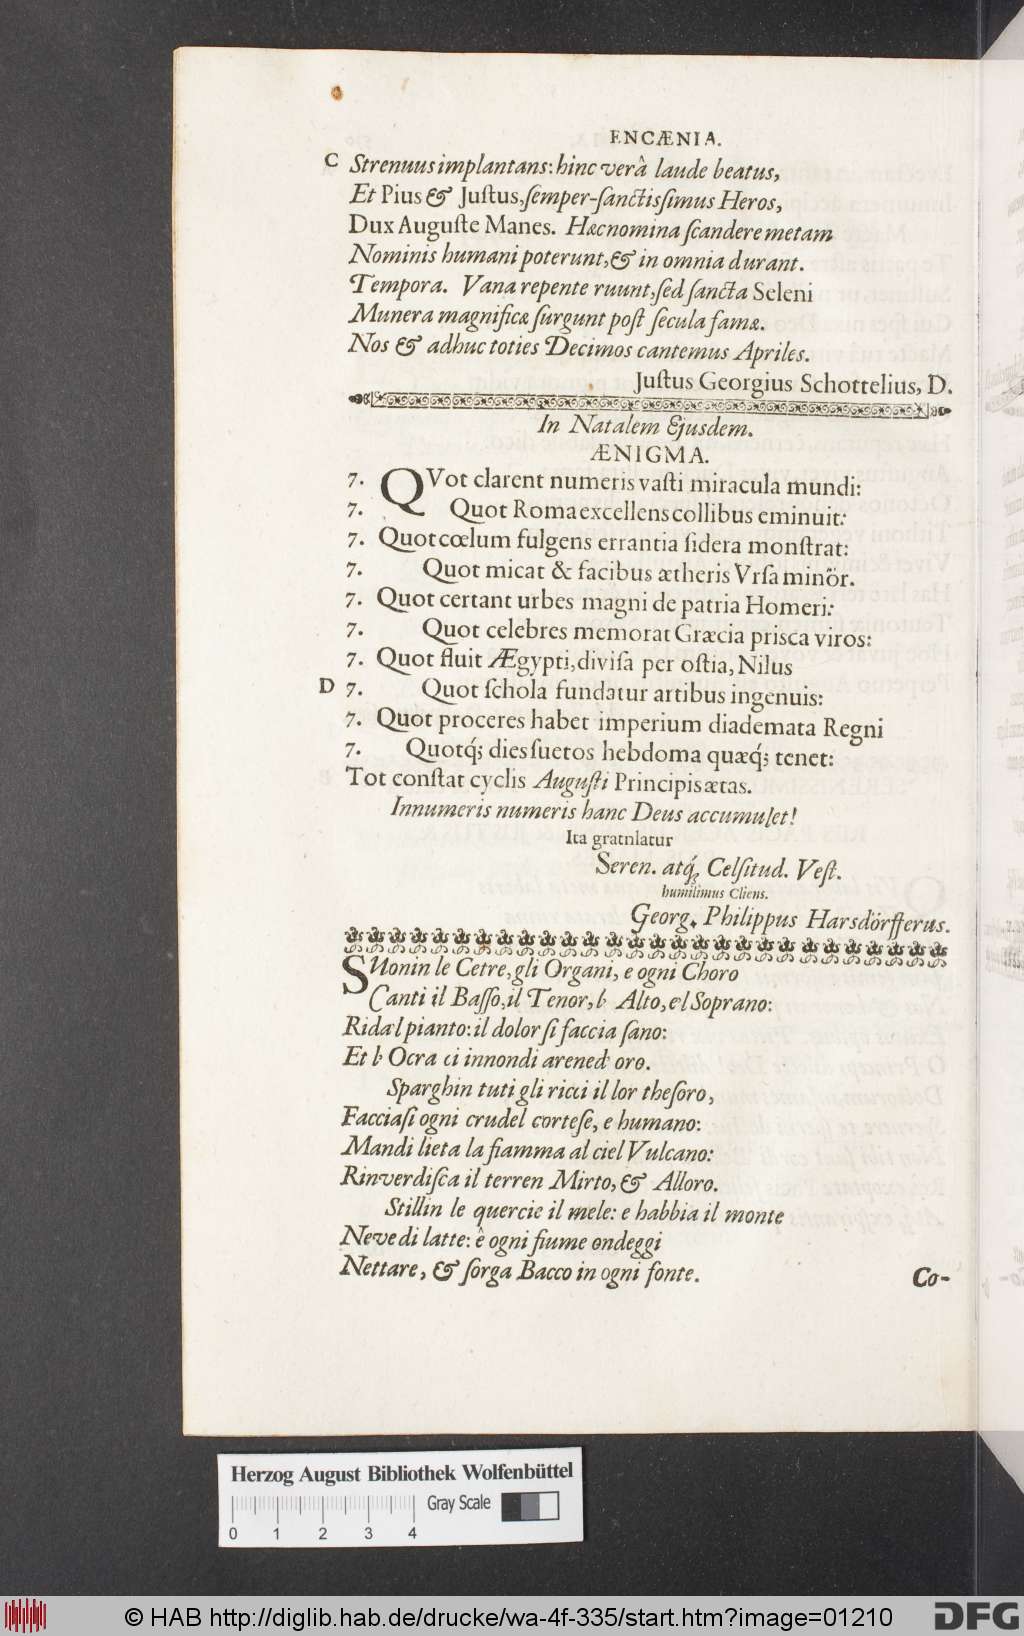 ENCÆNIA.
C Strenuus implantans: hinc verâ laude beatus,
Et Pius & Juſtus, ſemper-ſanctisſimus Heros,
Dux Auguſte Manes. Hæc nomina ſcandere metam
Nominis humani poterunt, & in omnia durant.
Tempora. Vana repente ruunt, ſed ſancta Seleni
Munera magnificæ ſurgunt poſt ſecula famæ.
Nos & adhuc toties Decimos cantemus Apriles.
Juſtus Georgius Schottelius, D.
In Natalem Ejusdem.
ÆNIGMA.
7. QVot clarent numeris vaſti miracula mundi:
7. Quot Roma excellens collibus eminuit:
7. Quot cœlum fulgens errantia ſidera monſtrat:
7. Quot micat & facibus ætheris Vrſa minor.
7. Quot certant urbes magni de patria Homeri:
7. Quot celebres memorat Græcia prisca viros:
7. Quot fluit Ægypti, diviſa per oſtia, Nilus
D 7. Quot ſchola fundatur artibus ingenuis:
7. Quot proceres habet imperium diademata Regni
7. Quotq́; dies ſuetos hebdoma quæq́; tenet:
Tot conſtat cyclis Auguſti Principis ætas.
Innumeris numeris hanc Deus accumulet!
Ita gratnlatur
Seren. atq́; Celſitud. Veſt.
humilimus Cliens.
Georg. Philippus Harsdörfferus.
SUonin le Cetre, gli Organi, e ogni Choro
Canti il Baſſo, il Tenor, l' Alto, e'l Soprano:
Rida'l pianto: il dolor ſi faccia ſano:
Et l' Ocra ci innondi arene d' oro.
Sparghin tuti gli ricci il lor theſoro,
Facciaſi ogni crudel corteſe, e humano:
Mandi lieta la fiamma al ciel Vulcano:
Rinverdiſca il terren Mirto, & Alloro.
Stillin le quercie il mele: e habbia il monte
Neve di latte: è ogni fiume ondeggi
Nettare, & ſorga Bacco in ogni fonte.
Co-
Herzog August Bibliothek Wolfenbüttel
Gray Scale
0 1 2 3 4
© HAB http://diglib.hab.de/drucke/wa-4f-335/start.htm?image=01210
DFG